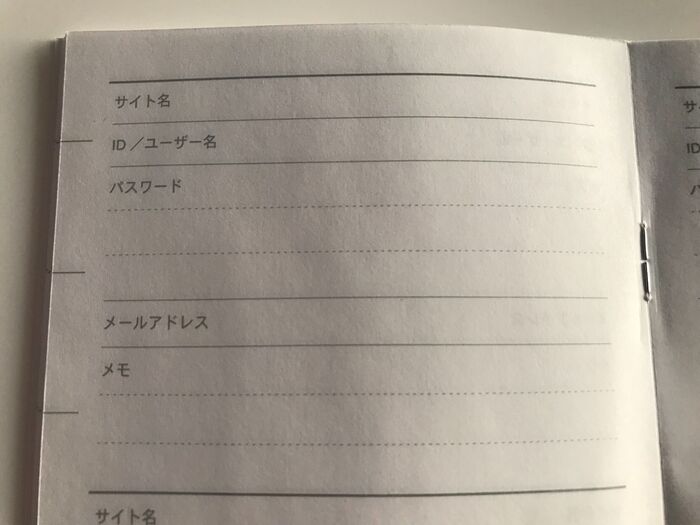 サイト名
ID／ユーザー名
パスワード
メールアドレス
メモ
サイト名
ID